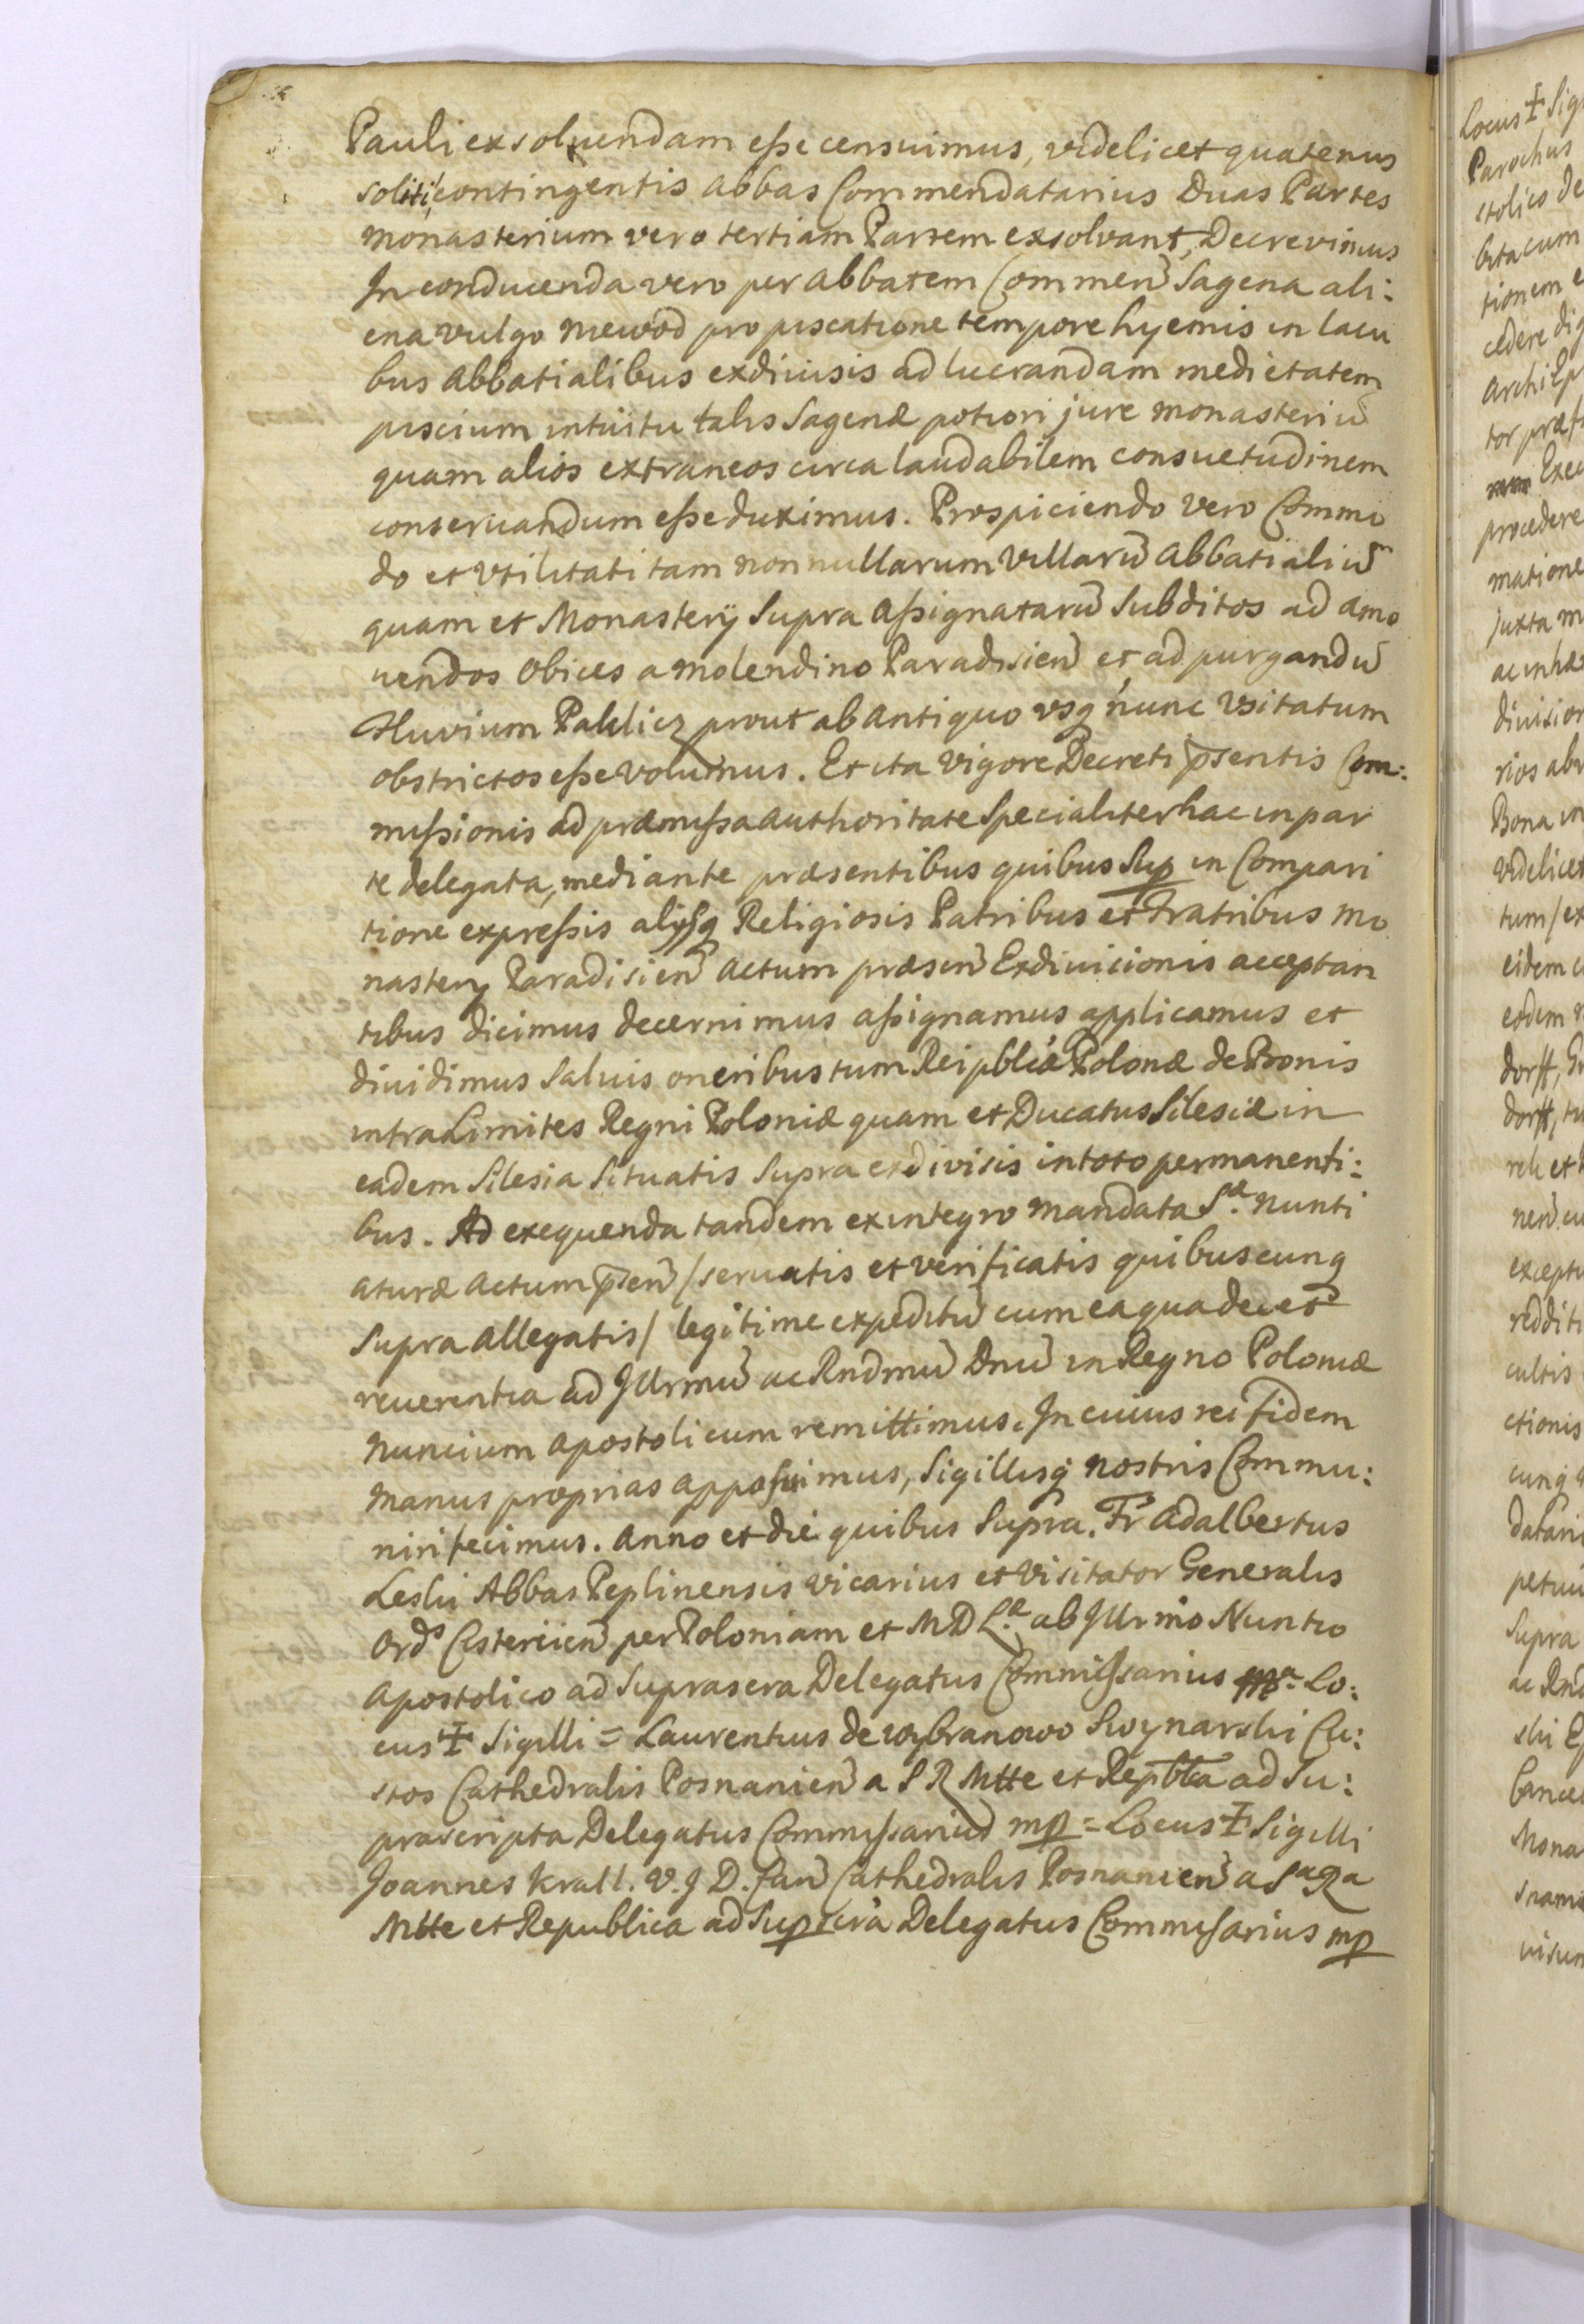 Pauli exsoluendam eße censuimus, videlicet quatenus
soliti contingentis Abbas Commendatarius Duas Partes
Monasterium vero tertiam Partem exsolvant, Decrevimus
In conducenda vero per Abbatem Commeñ Sagena ali:
ena vulgo Niewod pro piscatione tempore hyemis in lacu
bus Abbatialibus exdiuisis ad lucrandam medietatem
piscium intuitu talis Sagenæ potiori jure Monasteriũ
quam alios extraneos circa laudabilem consuetudinem
conseruandum eße duximus. Prospiciendo vero Commo
do et vtilitati tam nonnullarum Villarũ Abbatialiũ
quam et Monasterÿ Supra Aßignatarũ Subditos ad Amo
uendos Obices a Molendino Paradisieñ et ad purgandũ
Fluvium Paklicz prout ab Antiquo vsq nunc Vsitatum
obstrictos eße Volumus. Et ita Vigore Decreti p̃sentis Com:
mißionis ad præmißa Authoritate Specialiter hac in par
te delegata, mediante præsentibus quibus Sup in Compari
tione expreßis alÿsq Religiosis Patribus et Fratribus Mo
nastery Paradisieñ Actum præseñ Exdiuicionis acceptan
tibus dicimus decernimus aßignamus applicamus et
diuidimus Saluis oneribus tum Reipblicæ Polonæ de Bonis
intra Limites Regni Poloniæ quam et Ducatus Silesiæ in
eadem Silesia Situatis Supra exdivisis in toto permanenti:
bus. Ad exequenda tandem ex integro Mandata Sæ. Nunti
aturæ Actum p̃señ / seruatis et verificatis quibuscunq
Supra Allegatis / legitime expeditũ cum ea qua decet
reuerentia ad Jllrmũ ac Rndmũ Dnũ in Regno Poloniæ
Nuncium Apostolicum remittimus. In cuius rei fidem
Manus proprias apposuimus, Sigillisq nostris Commu:
niri fecimus. Anno et die quibus Supra. Fr Adalbertus
Leski Abbas Peplinensis Vicarius et Visitator Generalis
Ordˢ Cistercieñ per Poloniam et M D Læ. ab Jllrmo Nuntio
Apostolico ad Suprascra Delegatus Commißarius mpa. Lo:
cus ☩ Sigilli = Laurentius de Wybranowo Swynarski Cu:
stos Cathedralis Posnanieñ a S R Mtte et Repblca ad Su:
prascripta Delegatus Commißarius mp = Locus ☩ Sigilli
Joannes Krall. V. J D. Cañ Cathedralis Posnanieñ a Sa Ra
Mtte et Republica ad Supscra Delegatus Commisarius mp